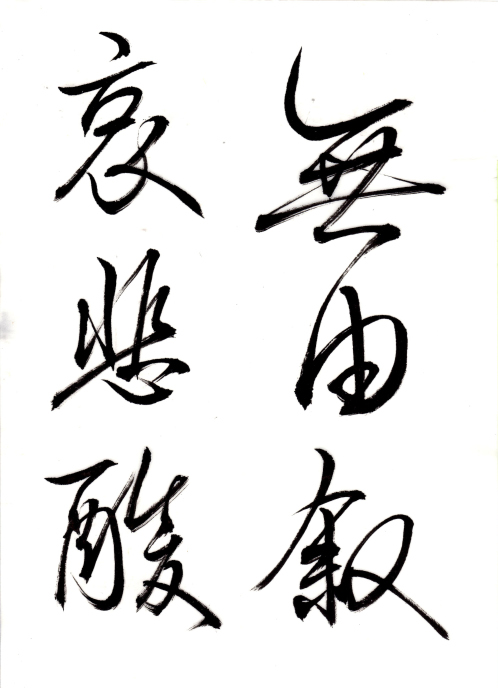 無由叙
哀悲酸